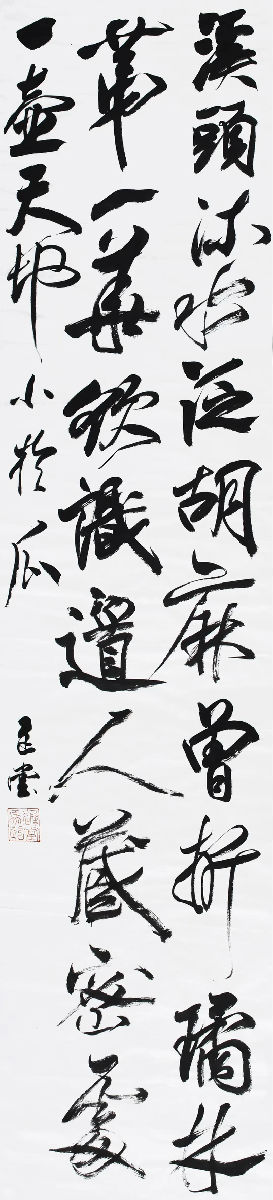 溪頭流水泛胡麻曾折璚林
第一華欲識道人藏密處
一壺天地小於瓜